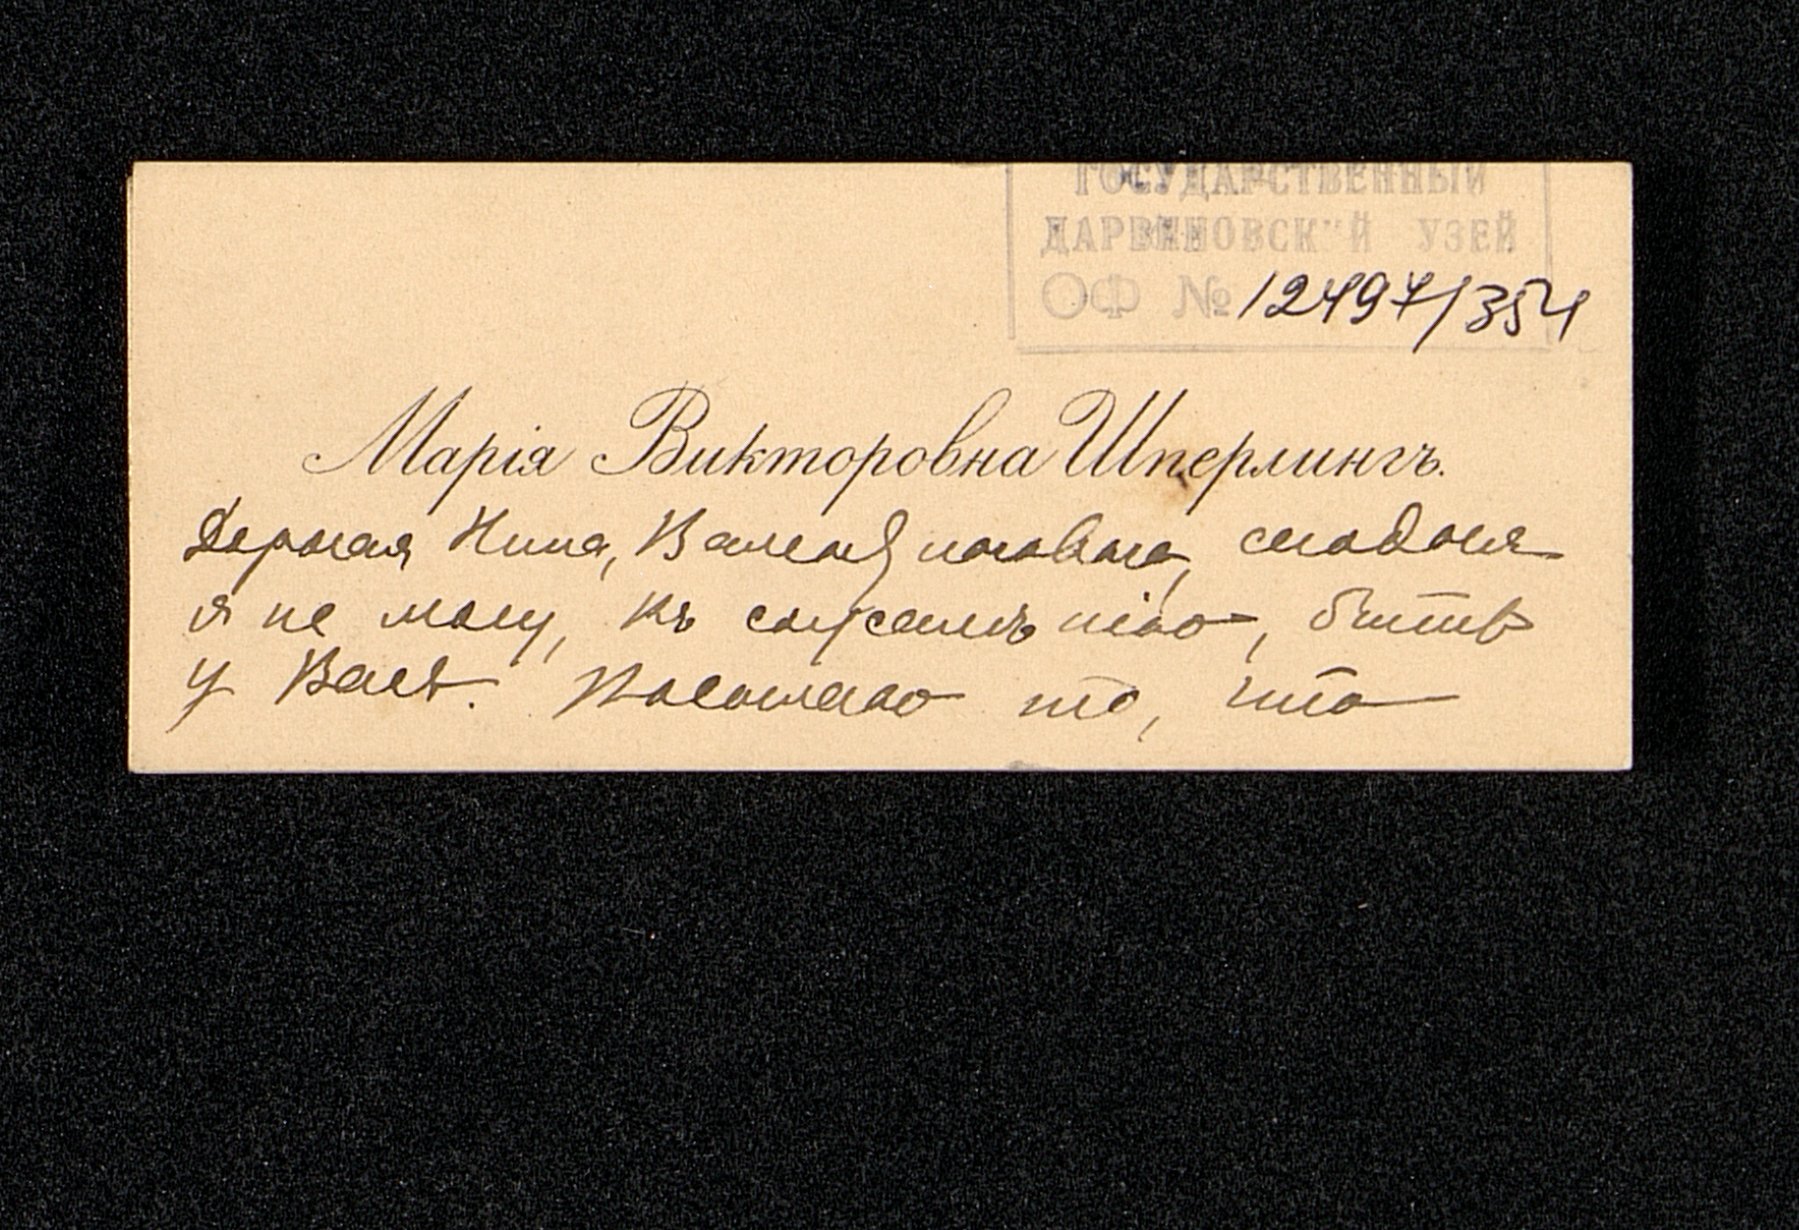 ГОСУДАРСТВЕННЫЙ
ДАРВИНОВСК"Й УЗЕЙ
ОФ № 12497/354
Марія Викторовна Шперлингъ.
Дорогая Нина, сегодня
я не могу, къ сожаленію, быть
у Васъ. Посылаю то, что